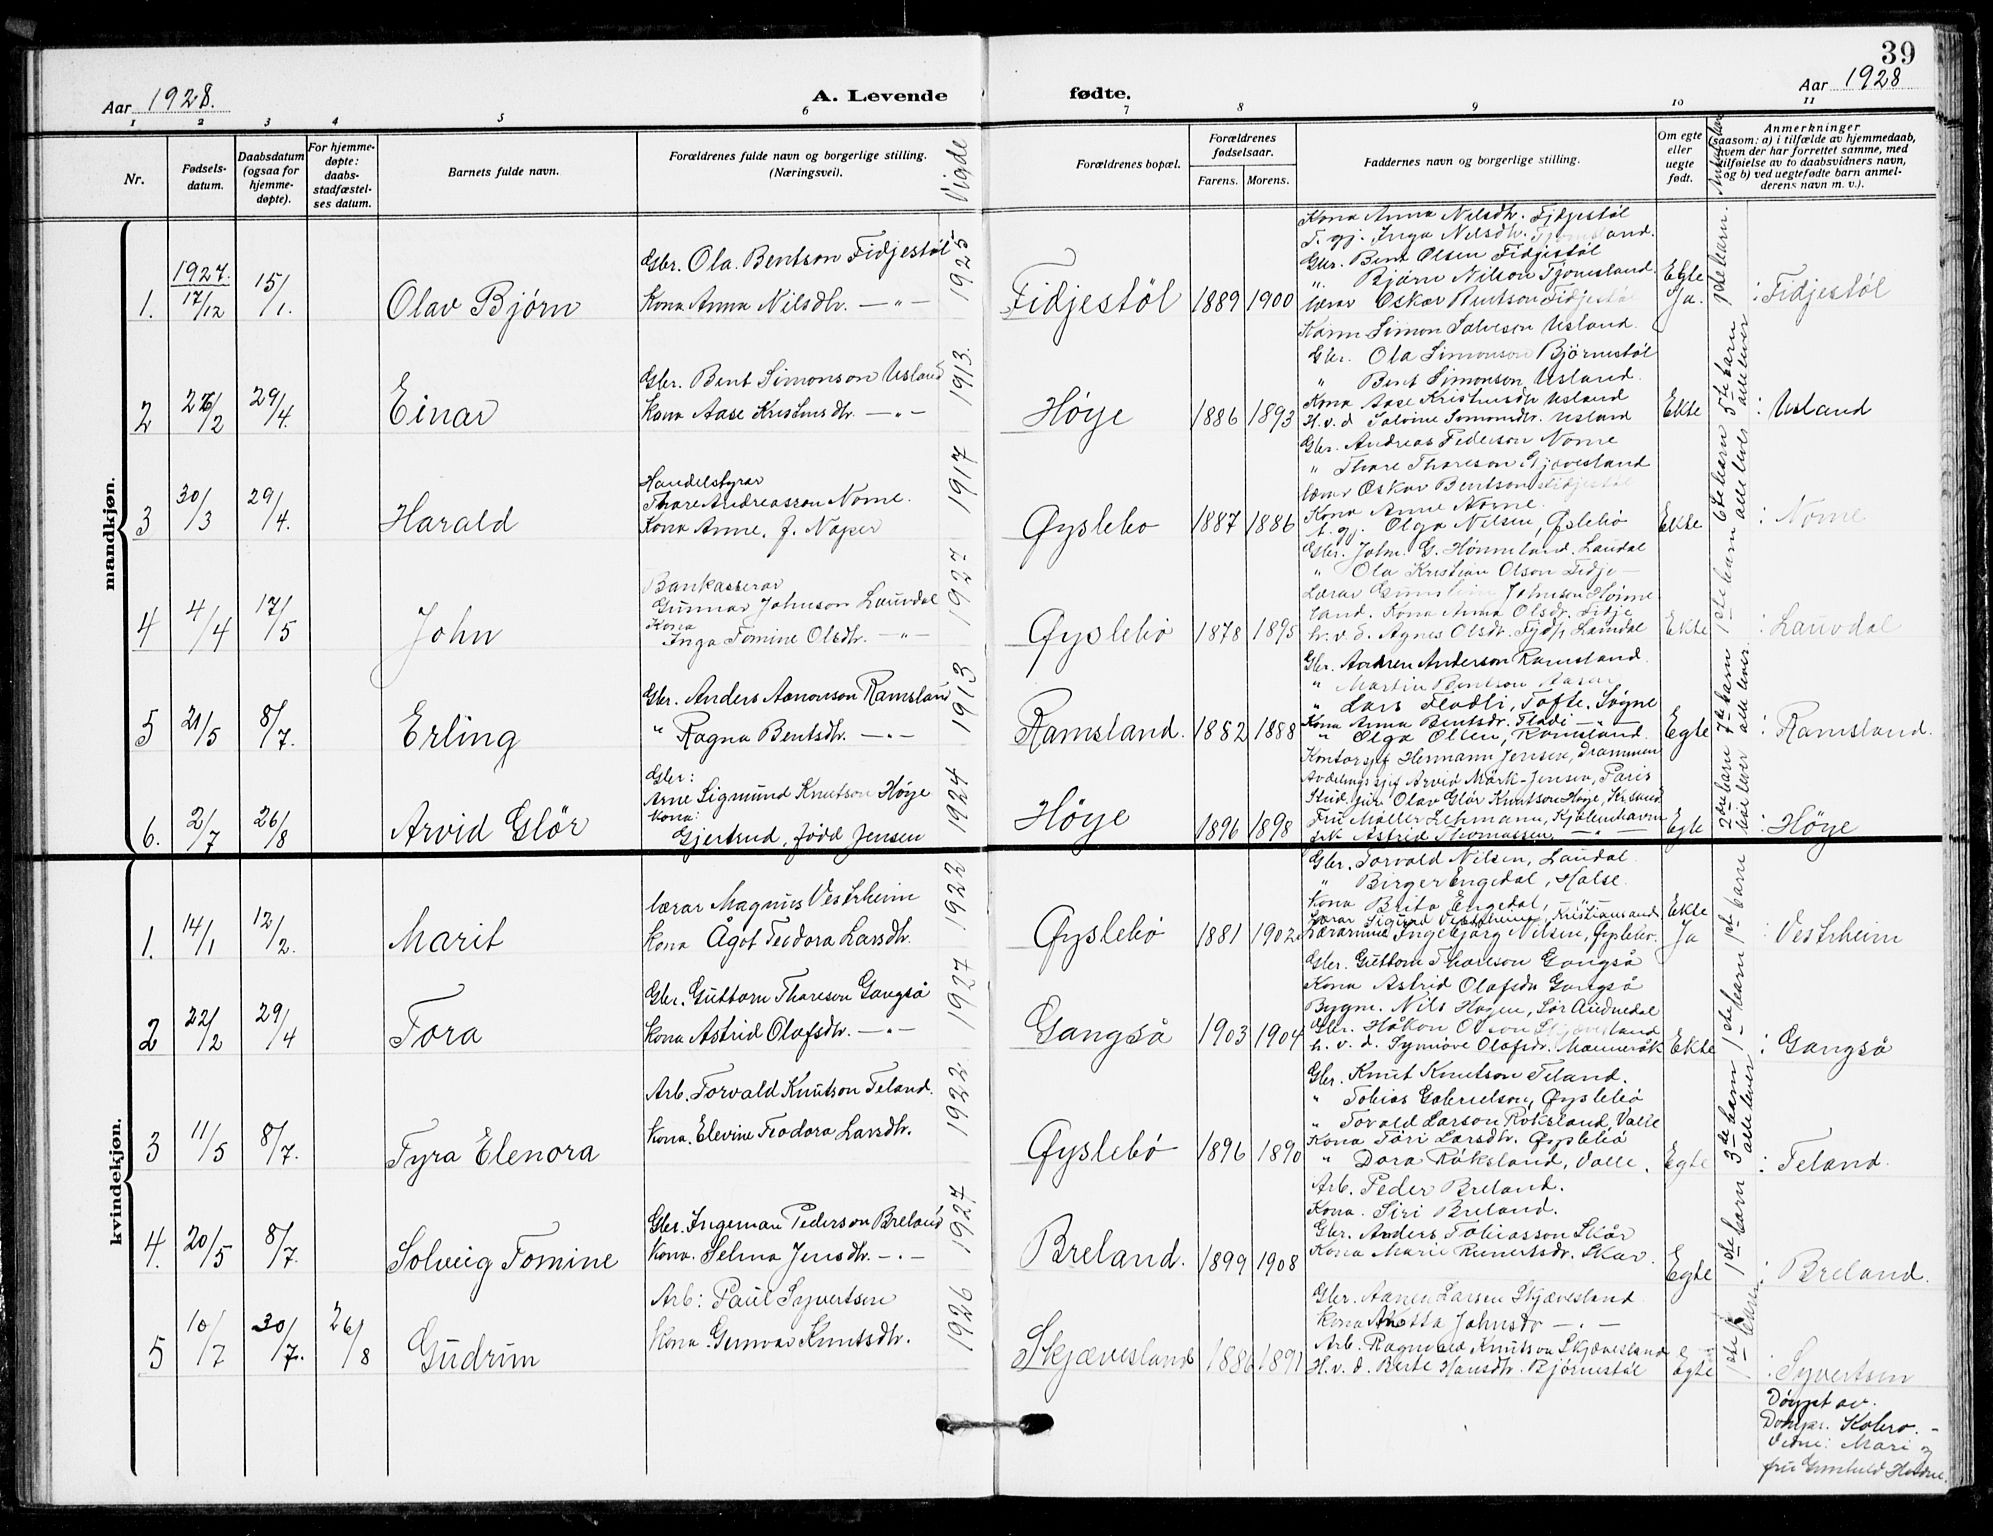 39
Aar 1928.
A. Levende
fødte.
Aar 1928
1 2 3 4 5 6 7 8 9 10 11
Nr.
Fødsels-
datum.
Daabsdatum
(ogsaa for
hjemme-
døpte).
For hjemme-
døpte:
daabs-
stadfæstel-
ses datum.
Barnets fulde navn.
Forældrenes fulde navn og borgerlige stilling.
(Næringsvei).
Vigde
Forældrenes bopæl.
Forældrenes
fødselsaar.
Farens. Morens.
Faddernes navn og borgerlige stilling.
Om egte
eller
uegte
født.
Anmerkninger
(saasom: a) i tilfælde av hjemmedaab,
hvem der har forrettet samme, med
tilføielse av to daabsvidners navn,
og b) ved uegtefødte barn anmel-
derens navn m. v.).
mandkjøn.
1. 1927. 17/12 15/1. Olav Bjørn
Gbr. Ola Bentson Fidjestøl
Kona Anna Nilsdtr. —"—
1925
Fidjestøl 1889 1900
Kona Anna Nilsdtr. Fidjestøl
T. gj. Inga Nilsdtr. Tjomsland.
Gbr. Bent Olsen Fidjestøl
" Bjørn Nilson Tjomsland.
lærar Oskar Bentson Fidjestøl
Egte
Ja.
1ste barn.
: Fidjestøl
2 26/2 29/4. Einar
Gbr. Bent Simonson Usland
Kona Aase Kristensdtr. —"—
1913.
Høye 1886 1893
Simon Salveson Usland.
Gbr. Ola Simonson Bjørnestøl
" Bent Simonson Usland.
Kona Aase Kristensdtr Usland
H.v.d. Usland
Ekte
5te barn
alle lever
: Usland
3 30/3 29/4. Harald
Handelstyrar
Thore Andreasson Nome.
Kona Anne, f. Naper
1917
Øyslebø 1887 1886
Gbr. Andreas Pederson Nome
" Thore Thoreson Skjævesland
lærar Oskar Bentson Fidjestøl
Kona Anne Nome.
Olga Nilsen, Øslebø
Ekte
6te barn
alle lever
: Nome
4 4/4 17/5 John
Bankasserar
Gunnar Johnson Lauvdal
Kona
Inga Tomine Olsdtr. —"—
1927
Øyslebø 1878 1895
Gbr. John. G. Laudal
" Ola Kristian Olson Fidje
Kona Anna Olsdtr. Fidje
h. v. d. Agnes Olsdtr.
Ekte
1ste barn
: Lauvdal
5 21/5 8/7. Erling
Gbr. Anders Aanonson Ramsland
" Ragna Bentsdtr. —"—
1913
Ramsland. 1882 1888
Gbr. Andreas Anderson Ramsland.
" Martin Bentson
" Lars Flodli, Tofte, Søgne
Kona Anna Bentsdr.
" Olga Olsen, Ramsland.
Egte
7de barn
alle lever.
: Ramsland.
6. 2/7 26/8 Arvid Glør
Gbr:
Arne Sigmund Knutson Høye
Kona:
Gjertrud, fødd Jensen
1924
Høye 1896 1898
Kontorsjef Hermann Jensen, Drammen
Avdelingssjef Arvid Mørk-Jensen, Paris
Stud. jur. Olav Glør Knutson Høye, Kr.sand
Fru Møller Lehmann, Kjøbenhavn
frk Astrid Thomassen —"—
Egte
2det barn
alle lever
: Høye
kvindekjøn.
1. 14/1 12/2. Marit
lærar Magnus Vestrheim
Kona Ågot Teodora Larsdtr.
1922
Øyslebø 1881 1902
Gbr. Torvald Nilsen, Laudal.
" Birger Engedal, Halse.
Kona Brita Engedal, —"—
Lærar Sigurd Vestrheim, Kristiansand
Lærarinne Ingebjørg Nilsen, Øyslebø.
Ekte
Ja
1ste barn
: Vestrheim
2 22/2 29/4 Tora
Gbr. Guttorm Thoreson Gangså
Kona Astrid Olafsdtr. —"—
1927
Gangså 1903 1904
Gbr. Guttorm Thoreson Gangså
Kona Astrid Olafsdr Gangså
Bygm. Nils Hagen, Sør Audnedal
Gbr. Håkon Olson Skjævesland
h. v. d. Synnøve Olafsdr.
Ekte
1ste barn
: Gangså
3 11/5 8/7. Tyra Elenora
Arb. Torvald Knutson Teland.
Kona. Elevine Teodora Larsdtr.
1922
Øyslebø 1896 1890
Gbr. Knut Knutson Teland.
" Tobias Gabrielson, Øyslebø
" Torvald Larson Røksland, Valle
Kona Tori Larsdtr. Øyslebø
" Dora Røksland, Valle.
Egte
3de barn
alle lever
: Teland.
4. 20/5 8/7. Solveig Tomine
Gbr. Ingeman Pederson Breland
Kona. Selma Jensdtr. —"—
1927
Breland. 1899 1908
Arb. Peder Breland.
Kona. Siri Breland.
Gbr. Anders Tobiasson Skår
Kona Marie Skår.
Egte
1ste barn
: Breland.
5 10/7 30/7. 26/8 Gudrun
Arb: Paul Syvertsen
Kona Gunvor Knutsdtr.
1926
Skjævesland 1886 1891
Gbr. Aanen Larsen Skjævesland
Kona Johnsdr —"—
Arb. Ragnvald Knutson Skjævesland
H.v. d. Berte Hansdtr. Bjørnestøl
Egte
1ste barn
: Syvertsen
Døypt av.
Kobro. -
Vidne: Mari
fru Gunhild